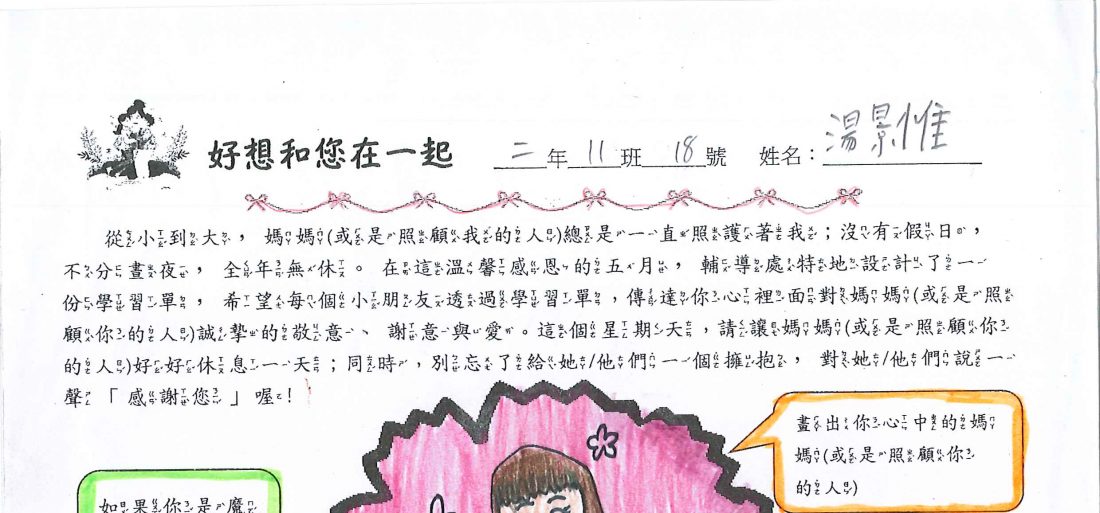 好想和您在一起 二年11班 18號 姓名：湯景惟
從小到大，媽媽(或是照顧我的人)總是一直照護著我；沒有假日，
不分晝夜，全年無休。在這溫馨感恩的五月，輔導處特地設計了一
份學習單，希望每個小朋友透過學習單，傳達你心裡面對媽媽(或是照
顧你的人)誠摯的敬意、謝意與愛。這個星期天，請讓媽媽(或是照顧你
的人)好好休息一天；同時，別忘了給她/他們一個擁抱，對她/他們說一
聲「感謝您」喔！
畫出你心中的媽
媽(或是照顧你
的人)
如果你是魔